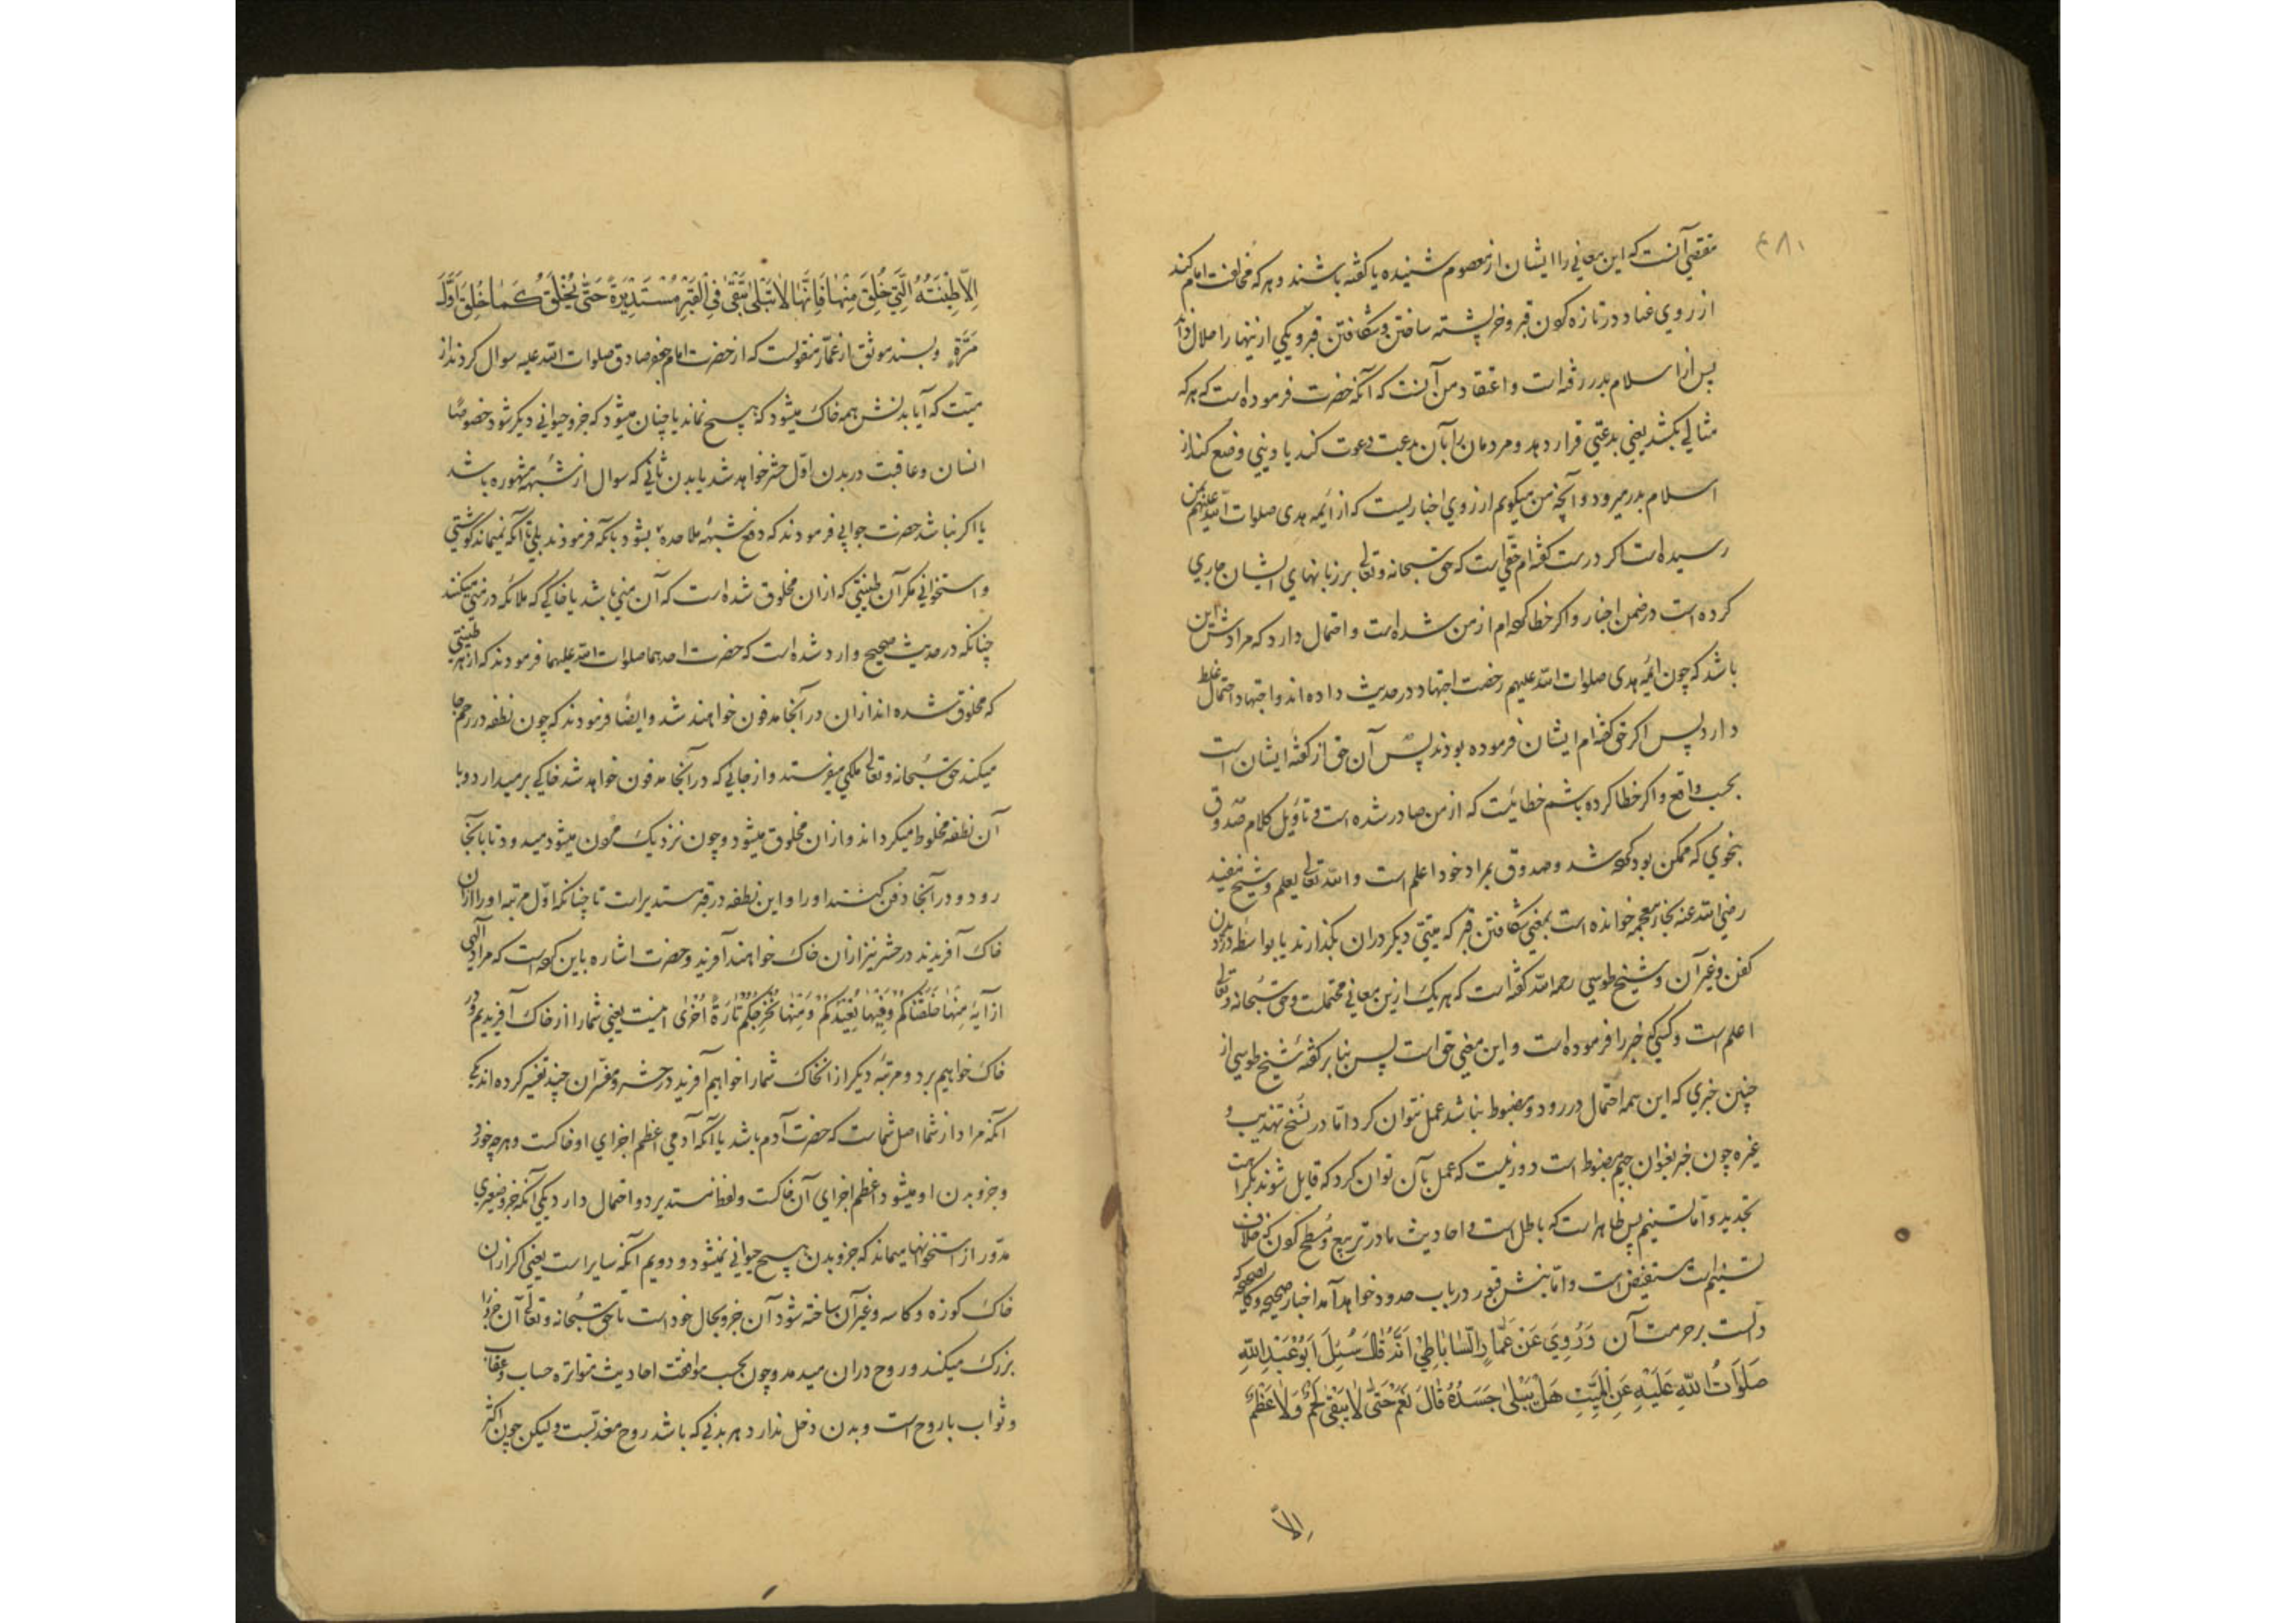 ۴۸۱
مقتضی آنست که این معانی را ایشان از معصوم شنیده یا کفته باشند و هر که مخالفت امام کند
از روی عناد در تازه کردن قبر و خر پشته ساختن و شکافتن قبر و یکی از اینها را حلال داند
پس از اسلام بدر رفته است و اعتقاد من آنست که آنکه حضرت فرموده است که هر که
مثالی بکشد یعنی بدعتی قرار دهد و مردمان را بآن بدعت دعوت کند یا دینی وضع کند از
اسلام بدر میرود و آنچه من میکویم از روی اخباریست که از ائمه هدی صلوات الله علیهم بمن
رسیده است اکر درست کفته‌ام حقی است که حق سبحانه و تعالی بر زبانهای ایشان جاری
کرده است در ضمن اخبار و اکر خطا کرده‌ام از من شده است و احتمال دارد که مرادش این
باشد که چون ائمه هدی صلوات الله علیهم رخصت اجتهاد در حدیث داده‌اند و اجتهاد احتمال غلط
دارد پس اکر حق کفته‌ام ایشان فرموده بودند پس آن حق از کفته ایشان است
بحسب واقع و اکر خطا کرده باشم خطائیست که از من صادر شده است و تاویل کلام صدوق
بنحوی که ممکن بود کرده شد و صدوق بمراد خود اعلم است و الله تعالی یعلم و شیخ مفید
رضی الله عنه بخاء معجمه خوانده است بمعنی شکافتن قبر که میتی دیکر در ان بکذارند یا بواسطه دزدیدن
کفن و غیر آن و شیخ طوسی رحمه الله کفته است که هر یک ازین معانی محتملست و حق سبحانه و تعالی
اعلم است و کسی که خبر را فرموده است و این معنی حق است پس بنا بر کفته شیخ طوسی از
چنین خبری که این همه احتمال در رود و مضبوط نباشد عمل نتوان کرد اما در نسخ تهذیب و
غیره چون خبر بعنوان جیم مضبوط است دور نیست که عمل بآن توان کرد که قایل شوند بکراهت
تجدید و اما تسنیم پس ظاهر است که باطل است و احادیث ما در تربیع و مسطح کردن که خلاف
تسنیم است مستفیض است و اما نبش قبور در باب حدود خواهد آمد اخبار صحیحه و کالصحیحه که
دالست بر حرمت آن وَرُوِيَ عَنْ عَمَّارِ السَّابَاطِيِّ اَنَّهُ قَالَ سُئِلَ اَبُوعَبْدِ اللّٰهِ
صَلَوَاتُ اللّٰهِ عَلَيْهِ عَنِ الْمَيِّتِ هَلْ يَبْلٰى جَسَدُهُ قَالَ نَعَمْ حَتّٰى لَا يَبْقٰى لَحْمٌ وَلَا عَظْمٌ
اِلاَّ
اِلاَّ طِيْنَتُهُ الَّتِي خُلِقَ مِنْهَا فَاِنَّهَا لَا تَبْلٰى تَبْقٰى فِي الْقَبْرِ مُسْتَدِيْرَةً حَتّٰى يُخْلَقَ كَمَا خُلِقَ اَوَّلَ
مَرَّةٍ و بسند موثق از عمار منقولست که از حضرت امام جعفر صادق صلوات الله علیه سوال کردند از
میت که آیا بدنش همه خاک میشود که هیچ نماند یا چنان میشود که جزو حیوانی دیکر شود خصوصا
انسان و عاقبت در بدن اول حشر خواهد شد یا بدن ثانی که سوال از شبهه مشهوره باشد
یا اکر نباشد حضرت جوابی فرمودند که دفع شبهه ملاحده بشود بانکه فرمودند بلی تا آنکه نمیماند کوشتی
و استخوانی مکر آن طینتی که از ان مخلوق شده است که آن منی باشد یا خاکی که ملائکه در منی میکنند
چنانکه در حدیث صحیح وارد شده است که حضرت احدهما صلوات الله علیهما فرمودند که از هر طینتی
که مخلوق شده‌اند از ان در آنجا مدفون خواهند شد و ایضا فرمودند که چون نطفه در رحم جا
میکند حق سبحانه و تعالی ملکی میفرستد و از جائی که در آنجا مدفون خواهد شد خاکی بر میدارد و با
آن نطفه مخلوط میکرداند و از ان مخلوق میشود و چون نزدیک مردن میشود میدود تا بآنجا
رود و در آنجا دفن کنند او را و این نطفه در قبر مستدیر است تا چنانکه اول مرتبه او را از ان
خاک آفریدند در حشر نیز از ان خاک خواهند آفرید و حضرت اشاره باین کرده است که مراد الهی
از آیه مِنْهَا خَلَقْنَاكُمْ وَفِيْهَا نُعِيْدُكُمْ وَمِنْهَا نُخْرِجُكُمْ تَارَةً اُخْرٰى اینست یعنی شما را از خاک آفریدیم و در
خاک خواهیم برد و مرتبه دیکر از ان خاک شما را خواهیم آفرید در حشر و مفسران چند تفسیر کرده‌اند یکی
آنکه مراد از شما اصل شماست که حضرت آدم باشد یا آنکه آدمی اعظم اجزای او خاکست و هر چه خورد
و جزو بدن او میشود اعظم اجزای آن خاکست و لفظ مستدیر دو احتمال دارد یکی آنکه جزو صغیری
مدور از استخوانها میماند که جزو بدن هیچ حیوانی نمیشود و دویم آنکه سایر است یعنی اکر از ان
خاک کوزه و کاسه و غیر آن ساخته شود آن جزو بحال خود است تا حق سبحانه و تعالی آن جزو را
بزرک میکند و روح در ان میدمد و چون بحسب موافقت احادیث متواتره حساب و عقاب
و ثواب با روح است و بدن دخل ندارد هر بدنی که باشد روح معذبست و لیکن چون اکثر